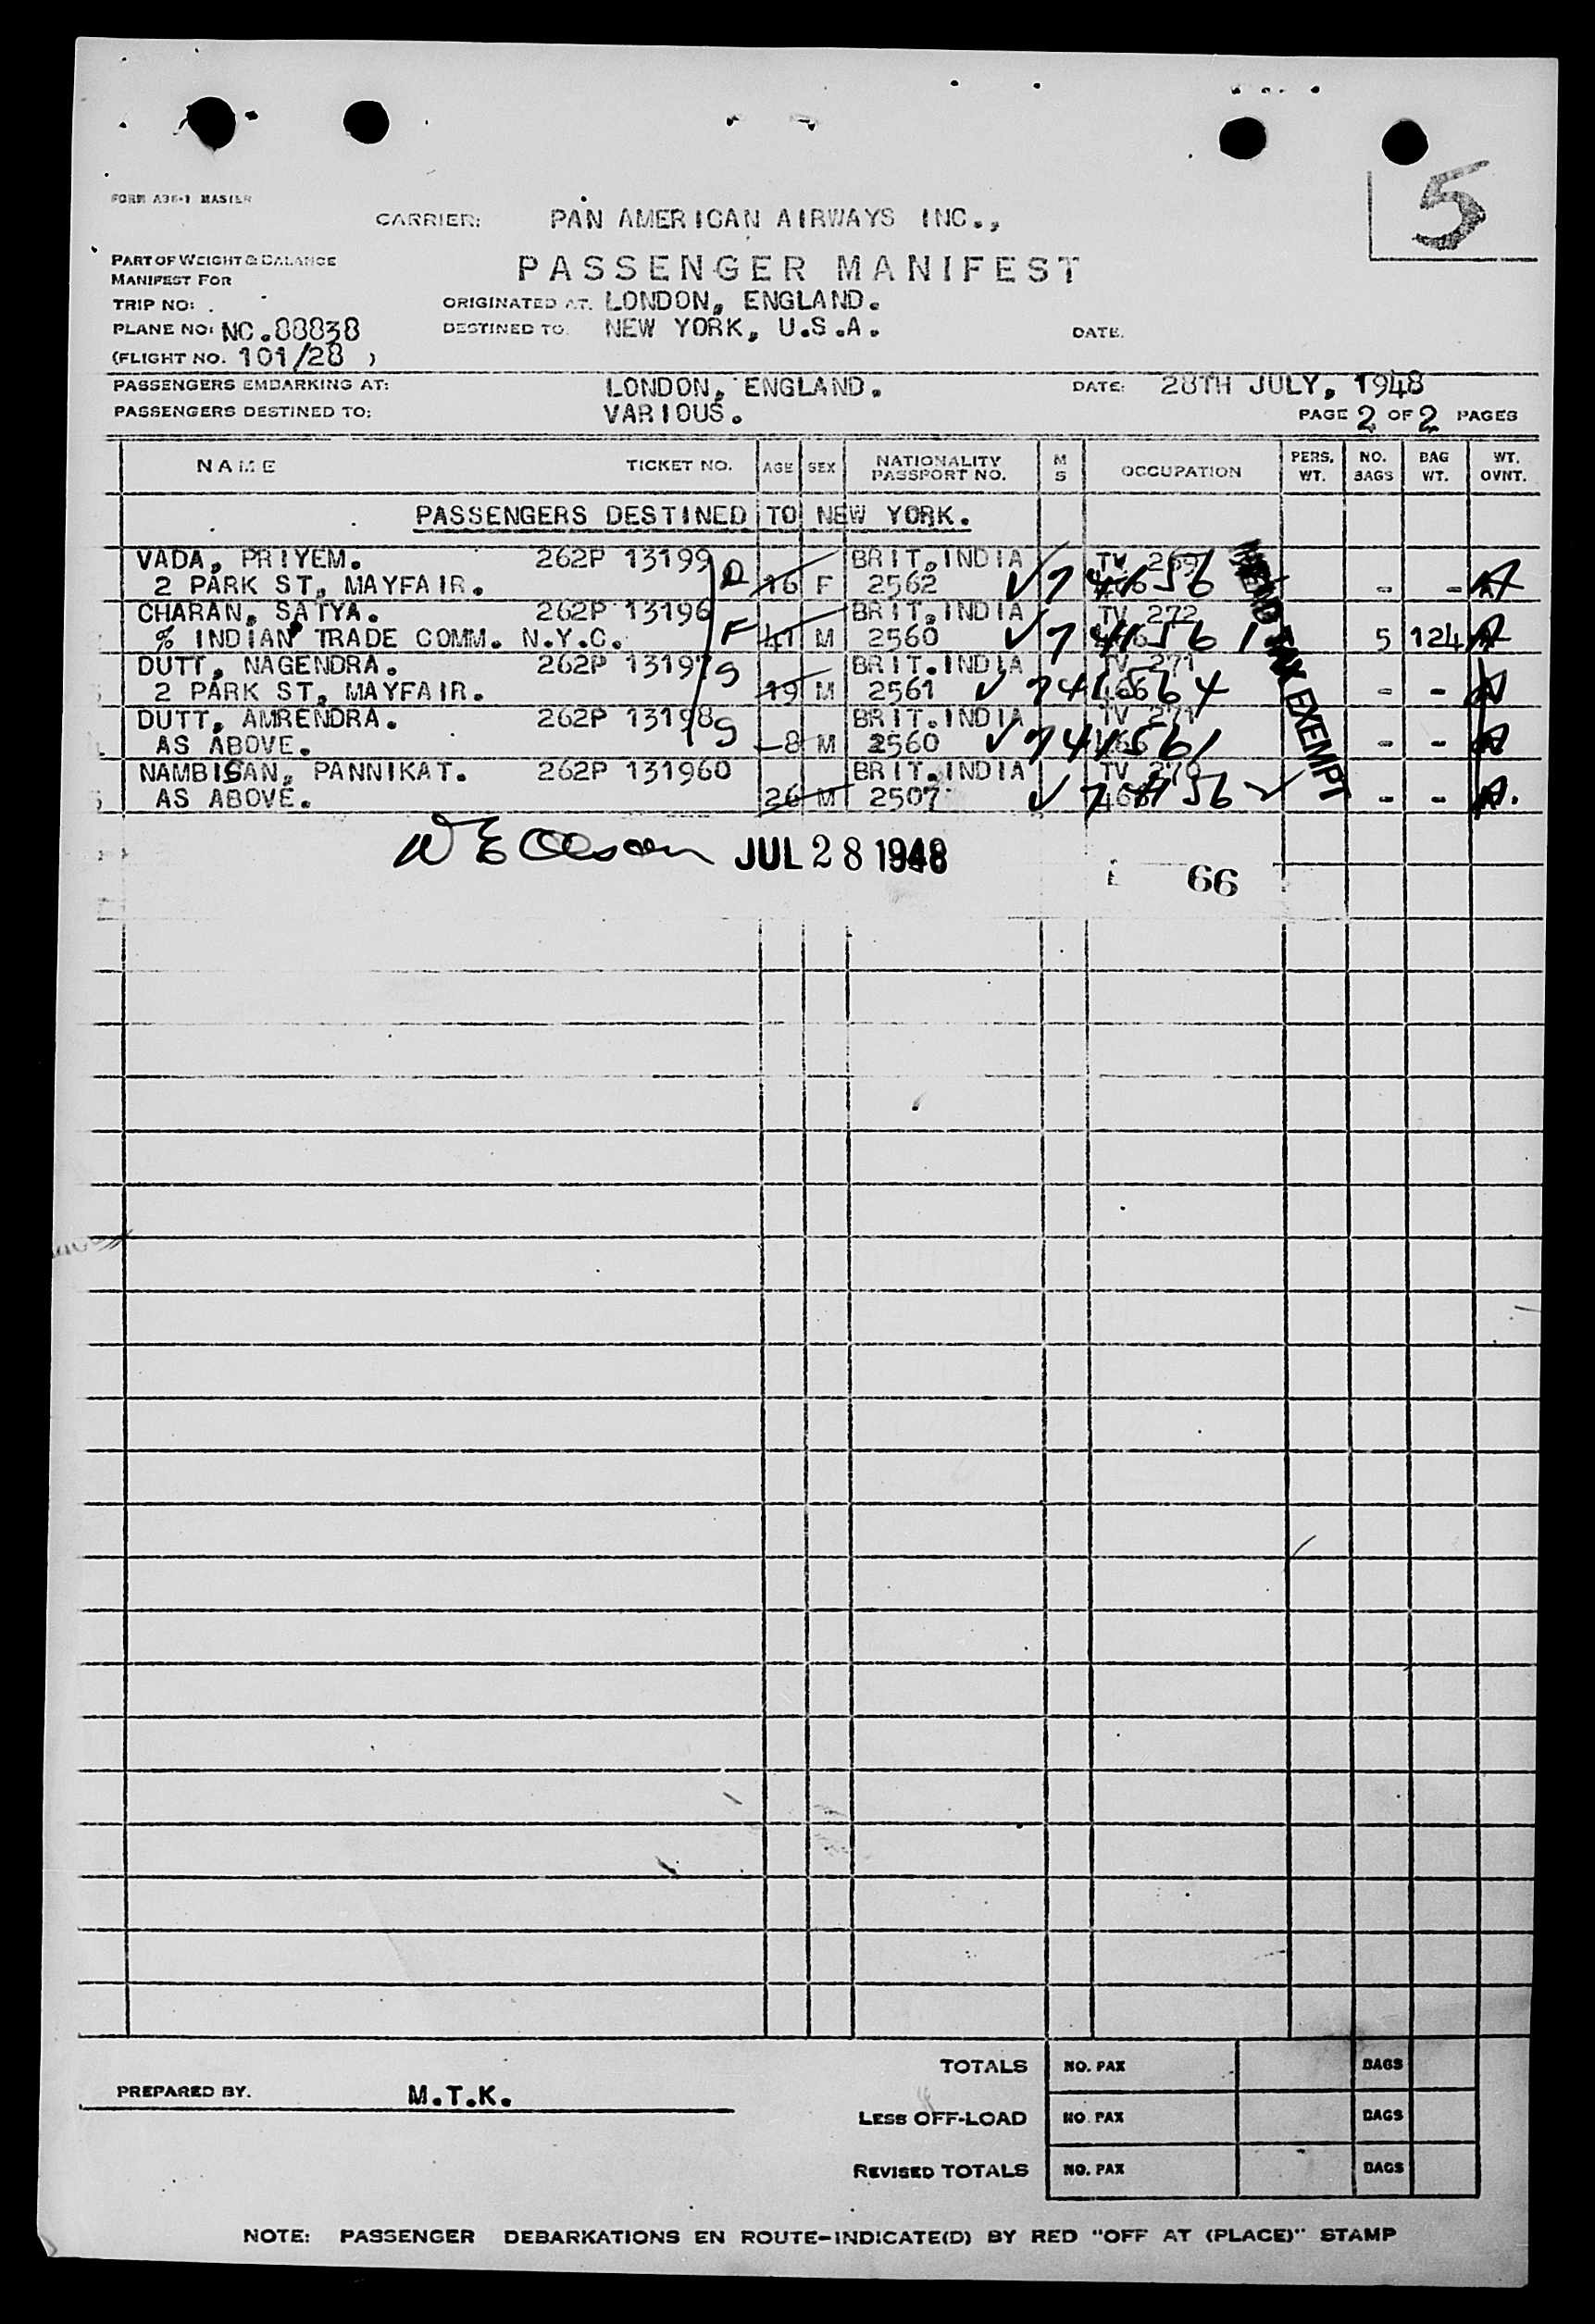 FORM A36-1 MASTER
5
CARRIER: PAN AMERICAN AIRWAYS INC.,
PART OF WEIGHT & BALANCE
MANIFEST FOR
PASSENGER MANIFEST
TRIP NO:
ORIGINATED AT. LONDON, ENGLAND.
PLANE NO: NC.88838
DESTINED TO. NEW YORK, U.S.A.
DATE.
(FLIGHT NO. 101/28 )
PASSENGERS EMBARKING AT: LONDON, ENGLAND. DATE: 28TH JULY, 1948
PASSENGERS DESTINED TO: VARIOUS. PAGE 2 OF 2 PAGES
NAME TICKET NO. AGE SEX NATIONALITY PASSPORT NO. M S OCCUPATION PERS. WT. NO. BAGS BAG WT. WT. OVNT.
PASSENGERS DESTINED TO NEW YORK.
VADA, PRIYEM. 262P 13199 BRIT.INDIA TV 269
2 PARK ST, MAYFAIR. 16 F 2562 - -
CHARAN, SATYA. 262P 13196 BRIT.INDIA TV 272
% INDIAN TRADE COMM. N.Y.C. F 41 M 2560 5 124
DUTT, NAGENDRA. 262P 13197 S BRIT.INDIA TV 271
2 PARK ST, MAYFAIR. 19 M 2561 - -
DUTT, AMRENDRA. 262P 13198 S BRIT.INDIA TV 271
AS ABOVE. -8 M 2560 - -
NAMBISAN, PANNIKAT. 262P 131960 BRIT.INDIA TV 270
AS ABOVE. 26 M 2507 - -
TAX EXEMPT
JUL 28 1948
66
TOTALS NO. PAX BAGS
PREPARED BY. M.T.K.
LESS OFF-LOAD NO. PAX BAGS
REVISED TOTALS NO. PAX BAGS
NOTE: PASSENGER DEBARKATIONS EN ROUTE-INDICATE(D) BY RED "OFF AT (PLACE)" STAMP